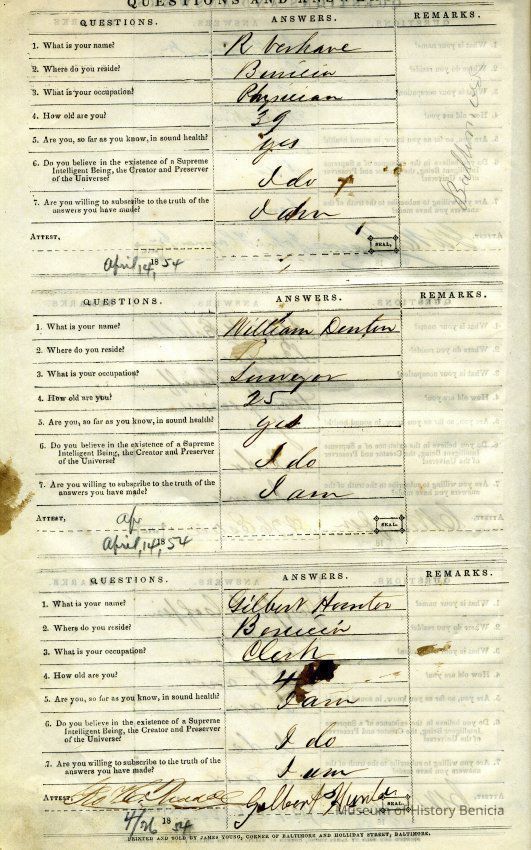 QUESTIONS AND ANSWERS.
QUESTIONS. ANSWERS. REMARKS.
1. What is your name? R Verhave
2. Where do you reside? Benicia
3. What is your occupation? Physician
4. How old are you? 39
5. Are you, so far as you know, in sound health? yes
6. Do you believe in the existence of a Supreme
Intelligent Being, the Creator and Preserver
of the Universe? I do
7. Are you willing to subscribe to the truth of the
answers you have made? I am
ATTEST,
SEAL.
April, 14, 1854
QUESTIONS. ANSWERS. REMARKS.
1. What is your name? William Denton
2. Where do you reside?
3. What is your occupation? Surveyor
4. How old are you? 25
5. Are you, so far as you know, in sound health? yes
6. Do you believe in the existence of a Supreme
Intelligent Being, the Creator and Preserver
of the Universe? I do
7. Are you willing to subscribe to the truth of the
answers you have made? I am
ATTEST, Ap
SEAL.
April, 14, 1854
QUESTIONS. ANSWERS. REMARKS.
1. What is your name? Gilbert Hunter
2. Where do you reside? Benicia
3. What is your occupation? Clerk
4. How old are you? 4
5. Are you, so far as you know, in sound health? I am
6. Do you believe in the existence of a Supreme
Intelligent Being, the Creator and Preserver
of the Universe? I do
7. Are you willing to subscribe to the truth of the
answers you have made? I am
ATTEST, Gilbert Hunter
SEAL.
4/26 1854
Museum of History Benicia
PRINTED AND SOLD BY JAMES YOUNG, CORNER OF BALTIMORE AND HOLLIDAY STREET, BALTIMORE.